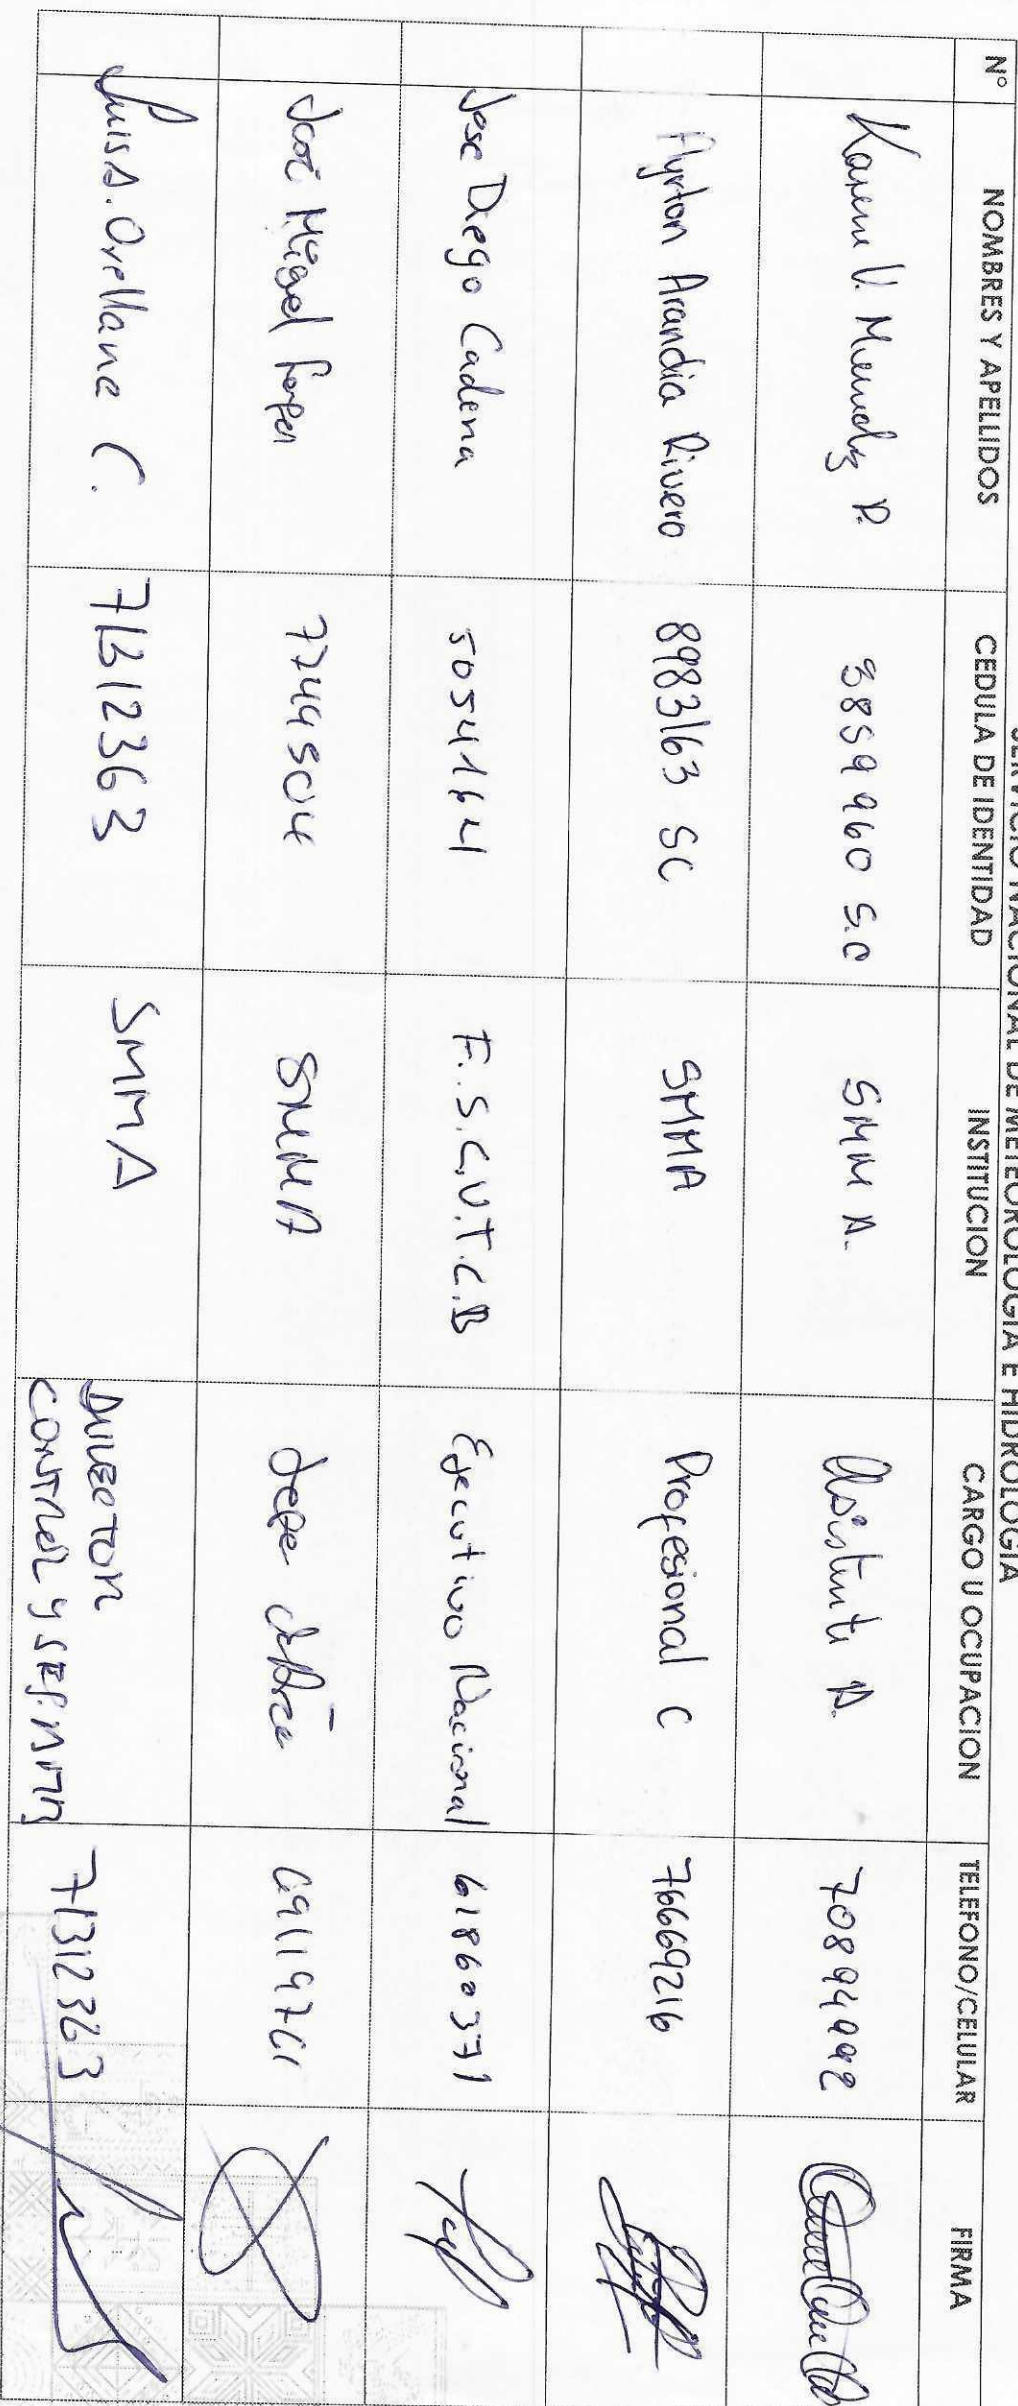 SERVICIO NACIONAL DE METEOROLOGIA E HIDROLOGIA
N° NOMBRES Y APELLIDOS CEDULA DE IDENTIDAD INSTITUCION CARGO U OCUPACION TELEFONO/CELULAR FIRMA
Karem V. P. 3859960 S.C SMMA. Asistente A. 70894992
Ayrton Arandia Rivero 8983163 SC SMMA Profesional C 76669216
Jose Diego Cadena 5054164 E.S.C.U.T.C.B Ejecutivo Nacional 61860371
José Miguel 7749504 SMMA Jefe de Área 69119761
Luis A. Orellana C. 71312363 SMMA DIRECTOR 71312363
CONTROL y